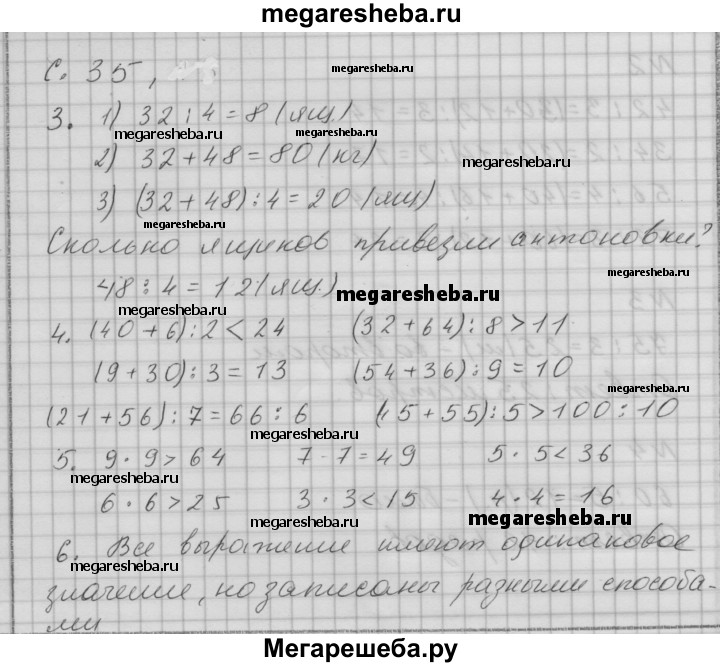 megaresheba.ru
С. 35,
megaresheba.ru
3. 1) 32 : 4 = 8 (ящ.)
megaresheba.ru
megaresheba.ru
2) 32 + 48 = 80 (кг)
megaresheba.ru
3) (32 + 48) : 4 = 20 (ящ)
megaresheba.ru
megaresheba.ru
Сколько ящиков привезли антоновки?
48 : 4 = 12 (ящ.)
megaresheba.ru
megaresheba.ru
megaresheba.ru
4. (40 + 6) : 2 < 24 (32 + 64) : 8 > 11
(9 + 30) : 3 = 13 (54 + 36) : 9 = 10
megaresheba.ru
megaresheba.ru
(21 + 56) : 7 = 66 : 6 (45 + 55) : 5 > 100 : 10
megaresheba.ru
5. 9 · 9 > 64 7 · 7 = 49 5 · 5 < 36
megaresheba.ru
megaresheba.ru
6 · 6 > 25 3 · 3 < 15 4 · 4 = 16
megaresheba.ru
megaresheba.ru
6. Все выражение имеют одинаковое
megaresheba.ru
значение, но записаны разными способа-
megaresheba.ru
megaresheba.ru
ми
Мегарешеба.ру